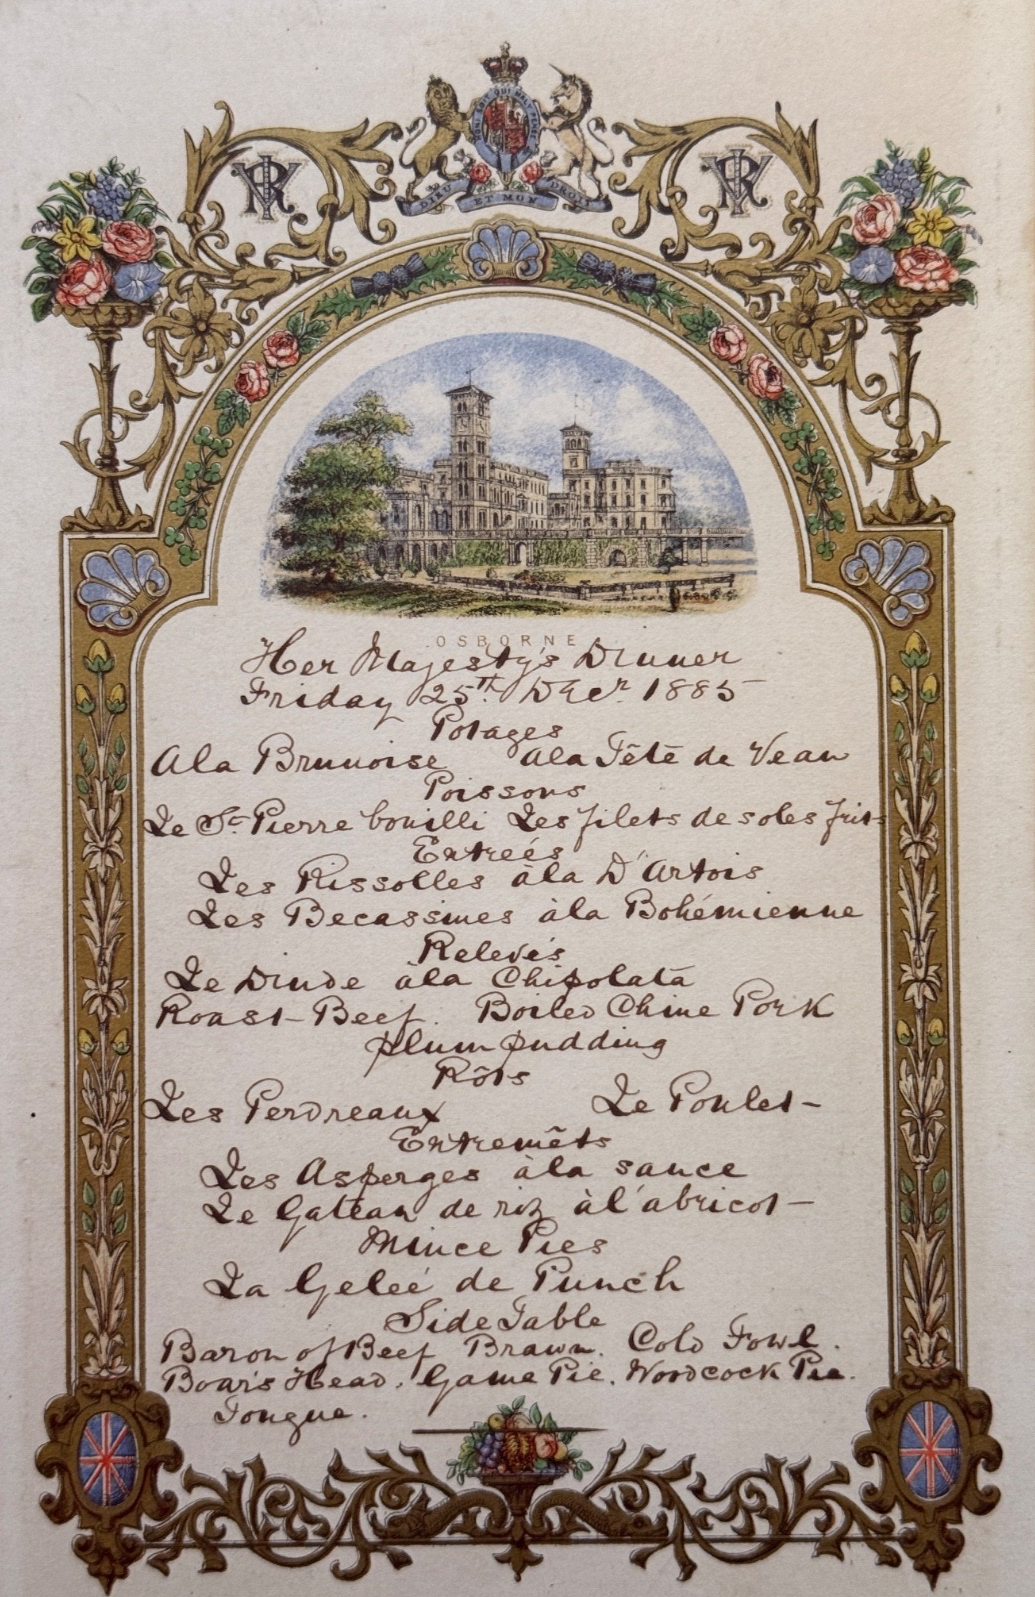 HONI SOIT QUI MAL Y PENSE
DIEU ET MON DROIT
VRI VRI
OSBORNE
Her Majesty's Dinner
Friday 25th Decr. 1885
Potages
A la Brunoise A la Tête de Veau
Poissons
Le St Pierre bouilli Les filets de soles frits
Entreés
Les Rissolles à la D'Artois
Les Becassines à la Bohémienne
Relevés
Le Dinde à la Chipolata
Roast-Beef. Boiled Chine Pork
plum pudding
Rôts
Les Perdreaux Le Poulet-
Entremêts
Les Asperges à la sauce
Le Gateau de riz à l'abricot-
Mince Pies
La Geleé de Punch
Side Table
Baron of Beef Brawn. Cold Fowl.
Boar's Head. Game Pie. Woodcock Pie.
Tongue.